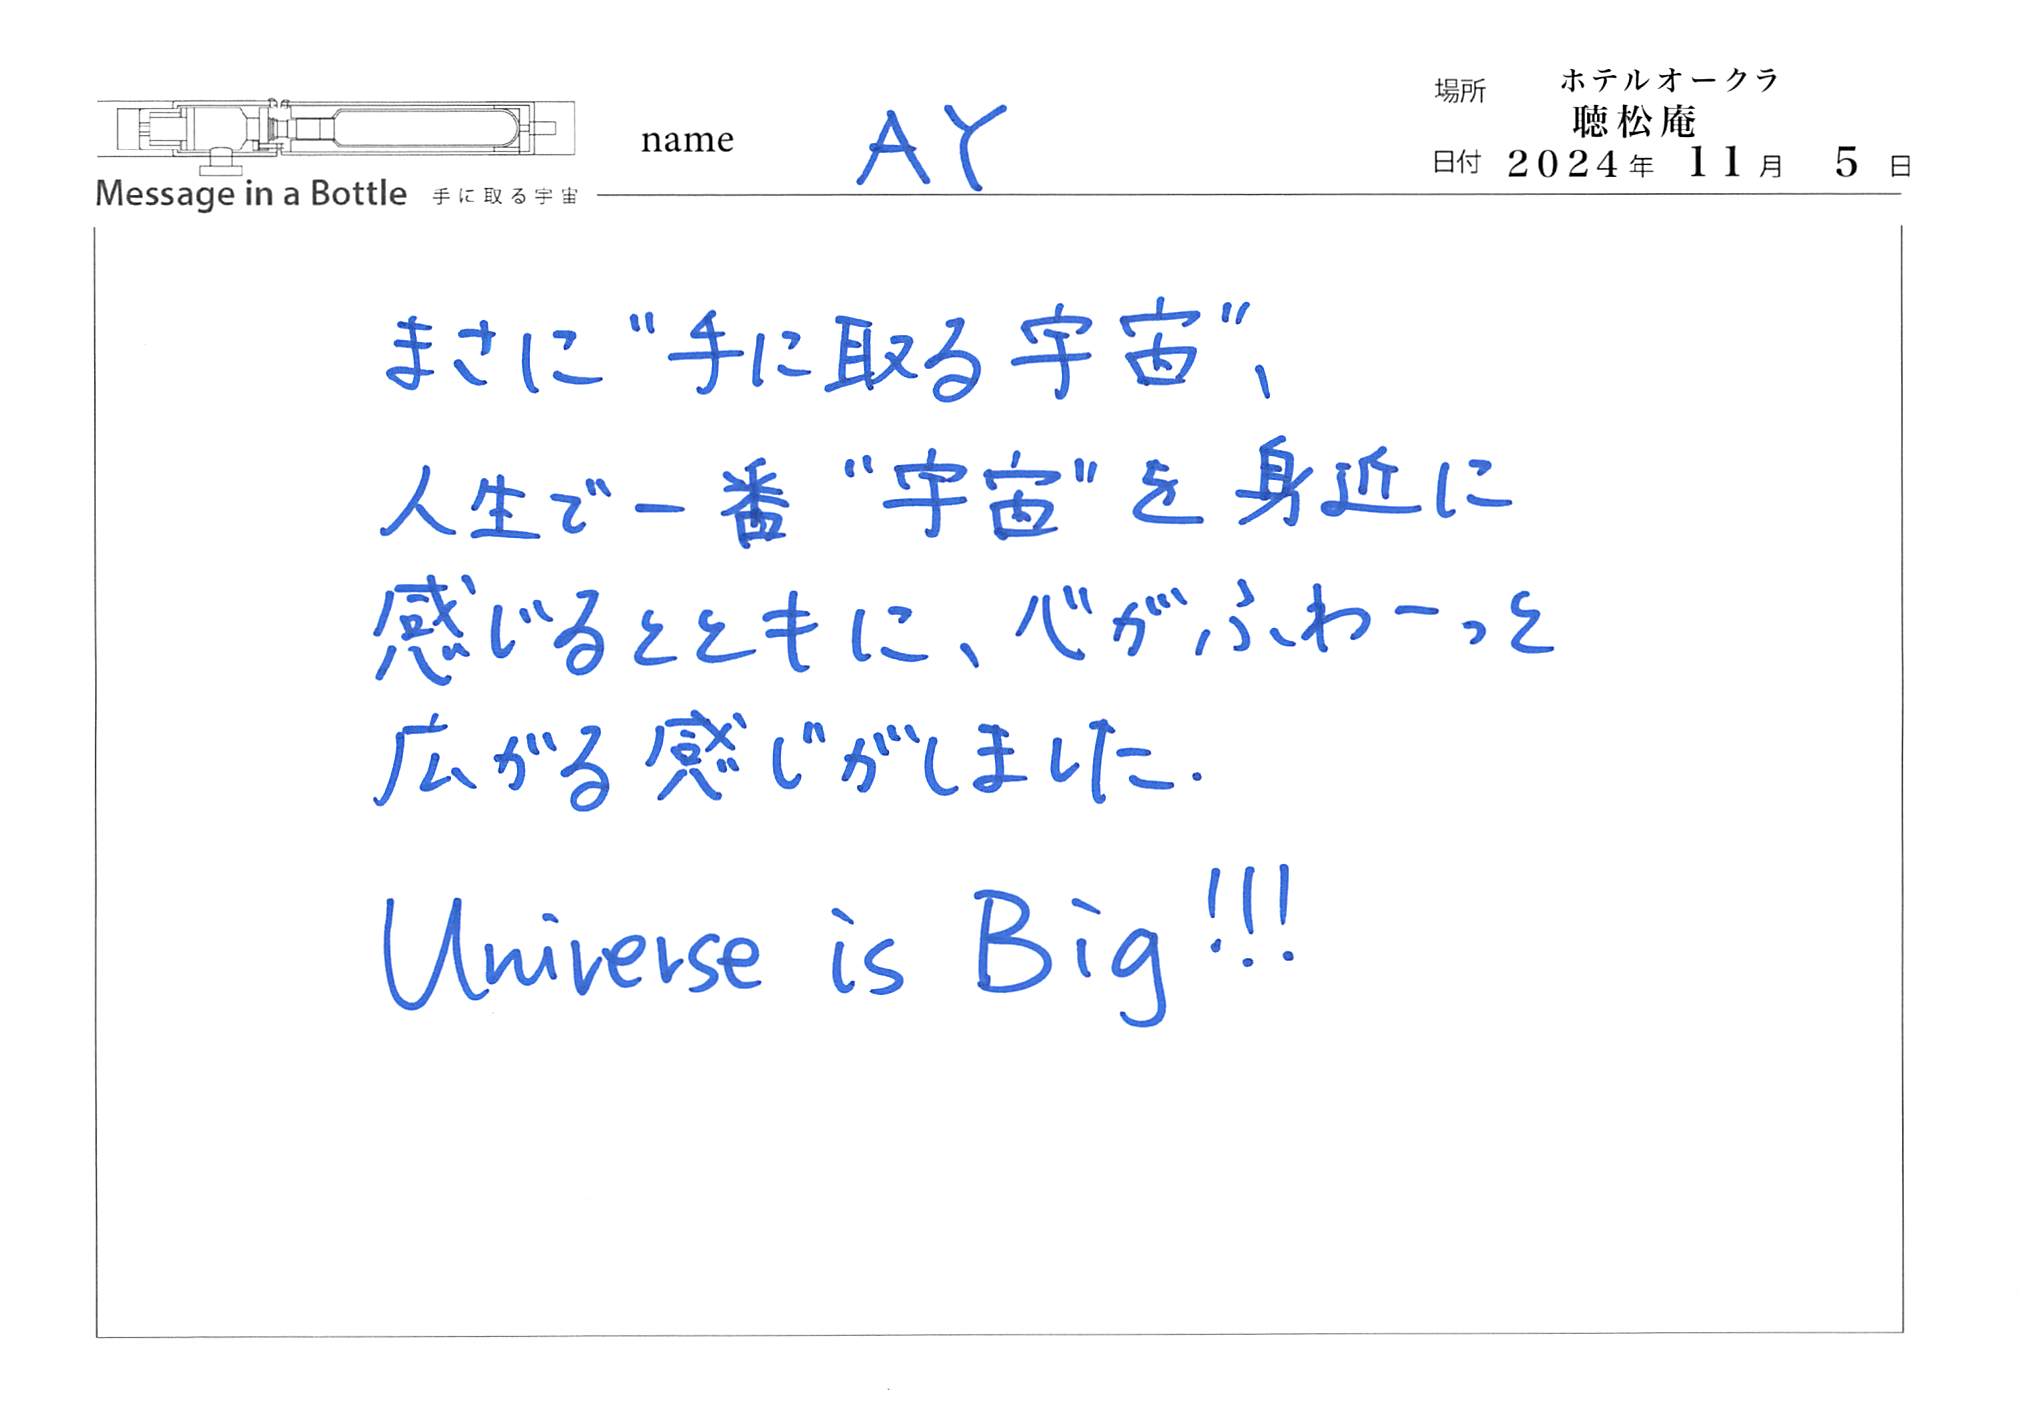 Message in a Bottle 手に取る宇宙
name AY
場所 ホテルオークラ
聴松庵
日付 2024年 11月 5日
まさに“手に取る宇宙”、
人生で一番“宇宙”を身近に
感じるとともに、心がふわーっと
広がる感じがしました.
Universe is Big!!!